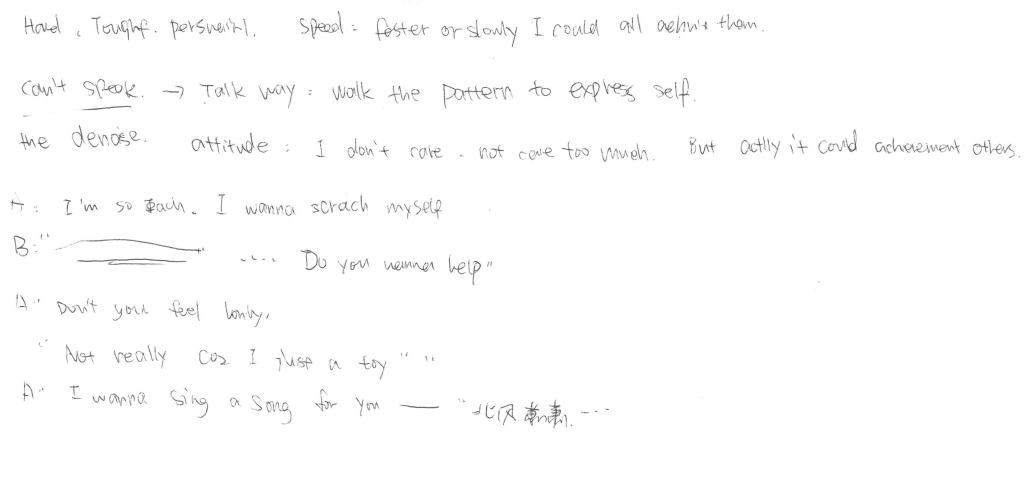 Hard, Tought. persueist. Speed: faster or slowly I could all achive them.
can't speak. → Talk way: walk the pattern to express self.
the denoise. attitude: I don't care. not care too much. But actlly it could acheivement others.
A: I'm so each. I wanna scrach myself
B: " .... Do you wanna help"
A: Don't you feel lonly,
"Not really coz I just a toy" "
A: I wanna sing a song for you — "北风 ...